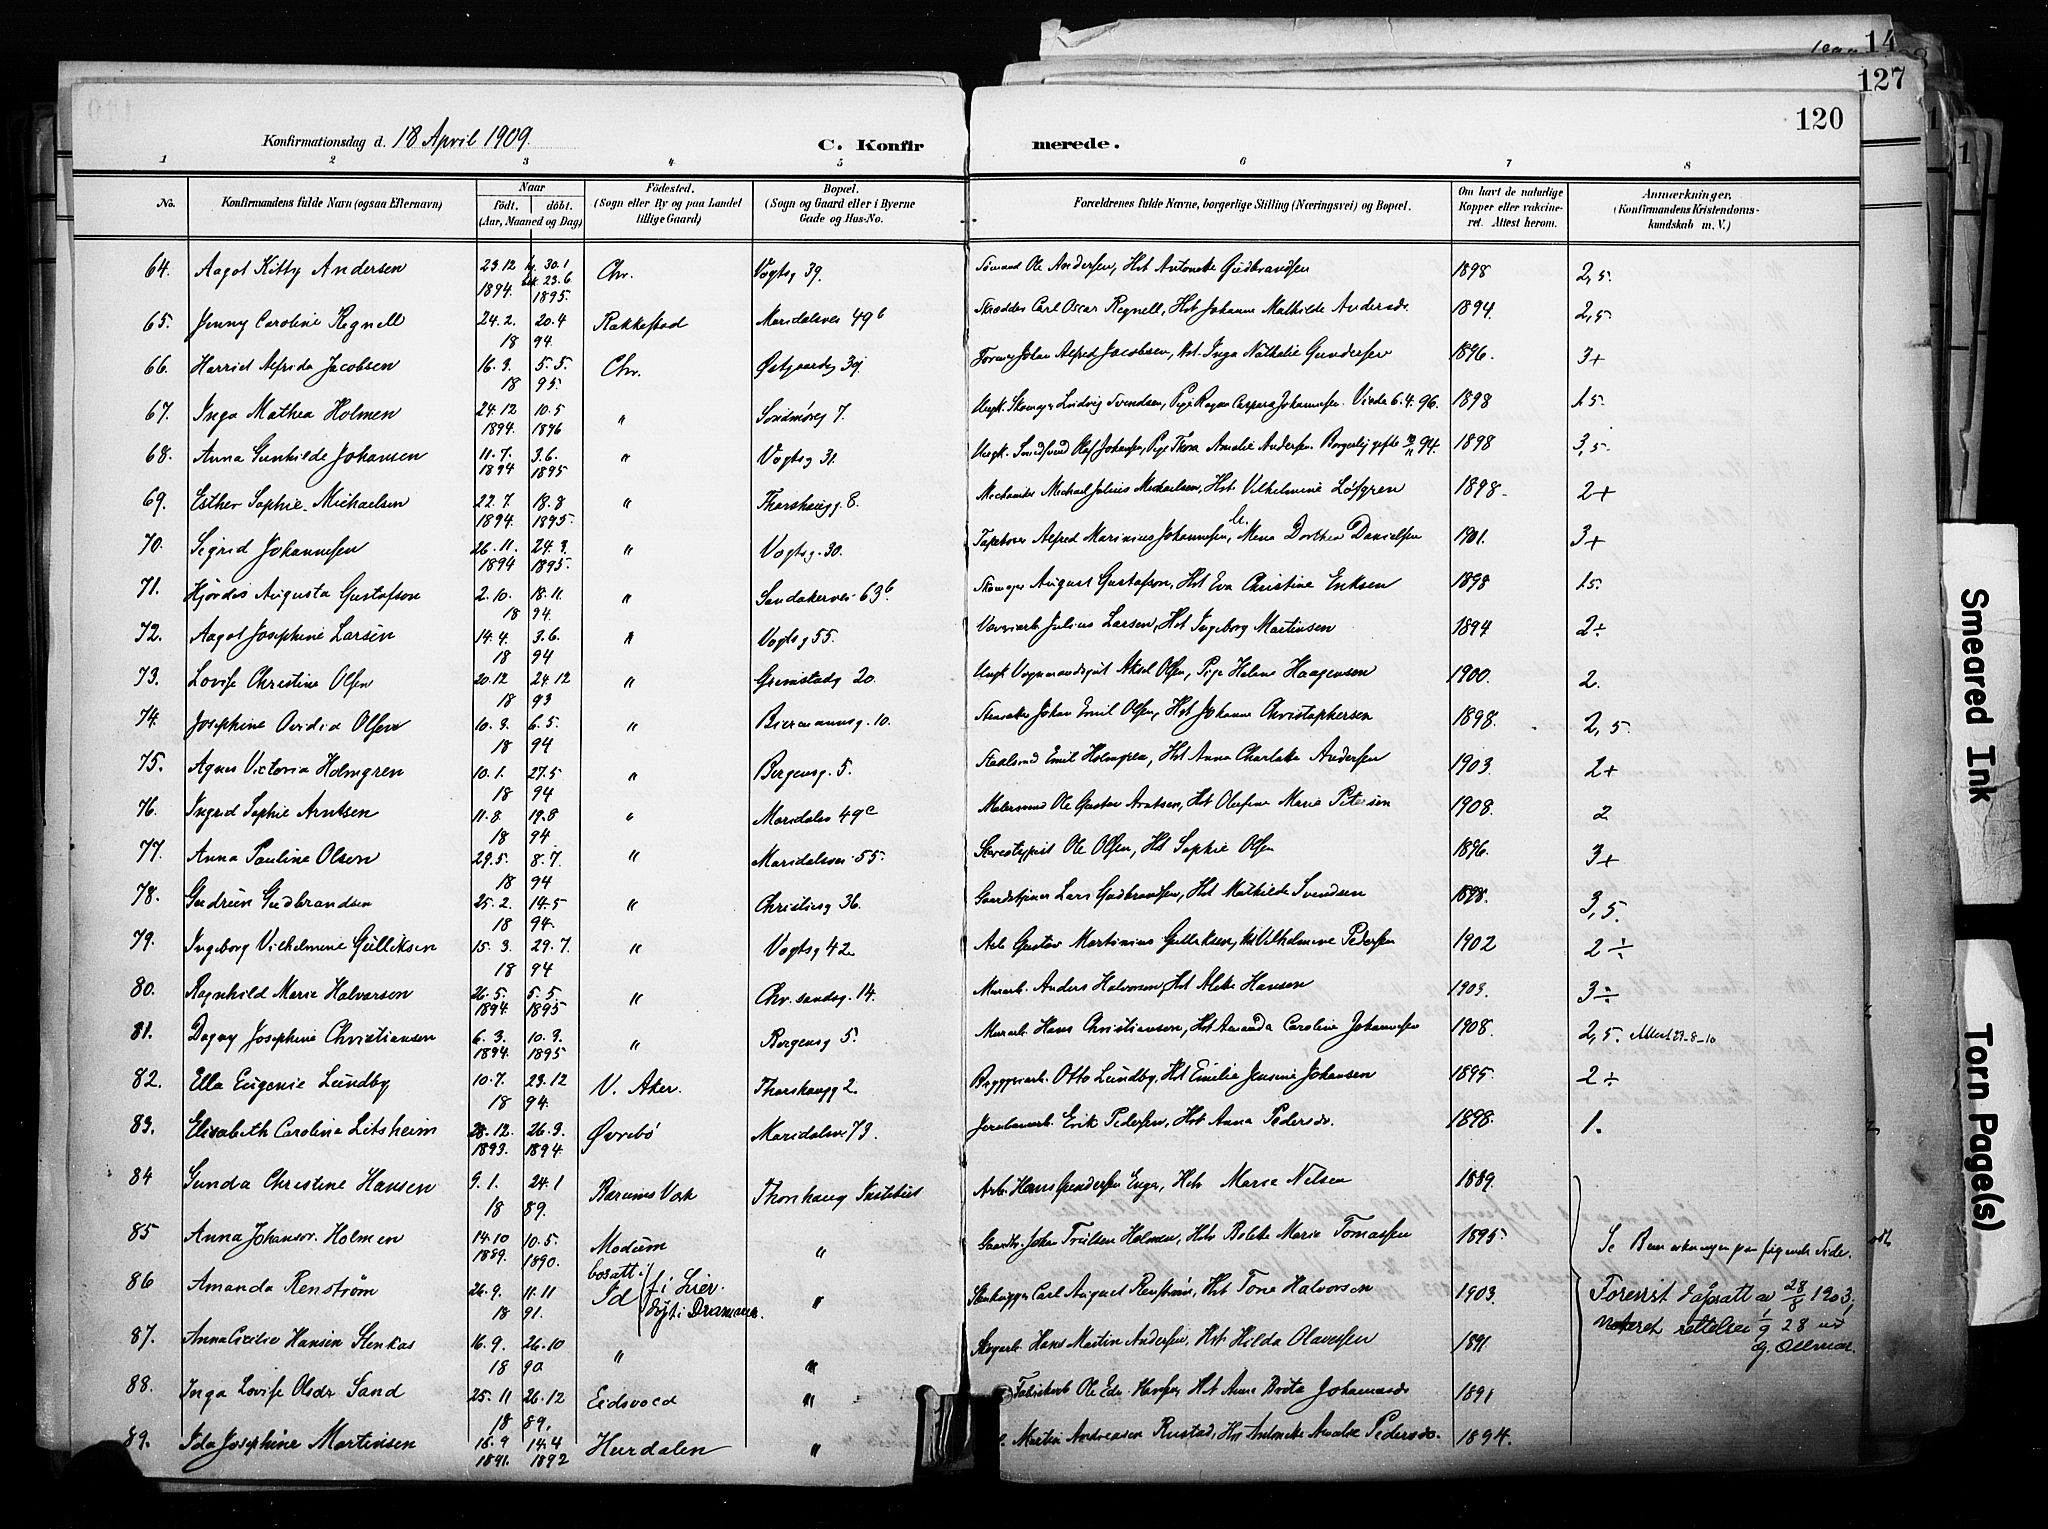 14
127
120
Konfirmationsdag d. 18 April 1909.
C. Konfirmerede.
1 2 3 4 5 6 7 8
No. Konfirmandens fulde Navn (ogsaa Efternavn) Naar født. døbt. (Aar, Maaned og Dag) Fødested. (Sogn eller By og paa Landet tillige Gaard) Bopæl. (Sogn og Gaard eller i Byerne Gade og Hus-No. Forældrenes fulde Navne, borgerlige Stilling (Næringsvei) og Bopæl. Om havt de naturlige Kopper eller vakcineret. Attest herom. Anmærkninger. (Konfirmandens Kristendomskundskab m. V.)
64. Aagot Kitty Andersen 23.12 1894. 30.1 23.6 1895. Chr. Vogtsg 39. Sømand Ole Andersen, Hst Antonette Gudbrandsen 1898 2,5
65. Jenny Caroline Regnell 24.2. 20.4 1894. Rakkestad Maridalsvei 49b Skrædder Carl Oscar Regnell, Hst Johanne Mathilde Andersdr. 1894. 2,5
66. Harriet Alfrida Jacobsen 16.3. 5.5. 1895. Chr. Østgaardsg 39. Johan Alfred Jacobsen, Hst. Inga Nathalie Gundersen 1896. 3+
67. Inga Mathea Holmen 24.12 1894. 10.5 1896 " Søndmøreg 7. Ungk. Skomager Ludvig Svendsen, Pige Ragna Caspara Johannesen. Viede 6.4.96. 1898 1.5
68. Anna Gunhilde Johansen 11.7. 1894 3.6. 1895. " Vogtsg 31. Ungk. Olaf Johansen, Pige Thora Amalie Andersen. Borgerlig gifte 94. 1898 3,5
69. Esther Sophie Michaelsen 22.7. 1894. 18.8 1895. " Thorshaugg. 8. Mechaniker Michael Julius Michaelsen, Hst. Vilhelmine Löfgren 1898 2+
70. Sigrid Johannesen 26.11. 1894 24.3. 1895. " Vogtsg. 30. Tapetserer Alfred Marinius Johannesen, Mena Dorthea Danielsen 1901. 3+
71. Hjørdis Augusta Gustafson 2.10. 18.11. 1894. " Sandakervei 63b Skomager August Gustafson, Hst Eva Christine Eriksen 1898 1.5
72. Aagot Josephine Larsen 14.4. 3.6. 1894 " Vogtsg 55. Væveriarb. Julius Larsen, Hst Ingeborg Martinsen 1894 2÷
73. Lovise Christine Olsen 20.12 24.12 1893 " Grimstadg 20. Ungk Vognmandsgut Aksel Olsen, Pige Helene Haagensen 1900. 2.
74. Josephine Ovidia Olsen 10.3. 6.5. 1894 " Biermannsg. 10. Johan Emil Olsen, Hst Johanne Christophersen 1898. 2,5.
75. Agnes Victoria Holmgren 10.1. 27.5 1894 " Bergensg. 5. Emil Holmgren, Hst Anna Charlotte Andersen 1903. 2+
76. Ingrid Sophie Arntsen 11.8. 19.8 1894 " Maridalsv 49c Malersvend Ole Gustav Arntsen, Hst Olefine Marie Petersen 1908. 2
77. Anna Pauline Olsen 29.5. 8.7. 1894 " Maridalsvei 55. Stereotypist Ole Olsen, Hst Sophie Olsen 1896. 3+
78. Gudrun Gudbrandsen 25.2. 14.5 1894. " Christiesg 36. Lars Gudbrandsen, Hst Mathilde Svendsen 1898. 3,5.
79. Ingeborg Vilhelmine Gulliksen 15.3. 29.7. 1894 " Vogtsg 42 Arb Gustav Martinius Gulliksen, Hst Vilhelmine Pedersen 1902 2÷
80. Ragnhild Marie Halvorsen 26.5. 1894 5.5. 1895 " Chr.sandsg. 14. Murarb. Anders Halvorsen, Hst Alette Hansen 1903. 3÷
81. Dagny Josephine Christiansen 6.3. 1894. 10.3. 1895 " Bergensg 5. Murarb. Hans Christiansen, Hst Amanda Caroline Johannesen 1908. 2,5. Attest 27-8-10
82. Ella Eugenie Lundby 10.7. 23.12 1894. V. Aker. Thorshaugg 2. Bryggeriarb. Otto Lundby, Hst Emilie Jensine Johansen 1895. 2÷
83. Elisabeth Carolina Litsheim 28.12. 1893. 26.3. 1894 Øvrebö Maridalsvei 73. Jernbanearb. Erik Pedersen, Hst Anna Pedersdr. 1898. 1.
84 Gunda Christine Hansen 9.1. 24.1 1889. Bærums Værk Thorshaug Institut Arb. Hans Gundersen Enger, Hst. Marie Nilsen 1889.
85 Anna Johansdr. Holmen 14.10 1889. 10.5. 1890. Modum " Johan Trulsen Holmen, Hst. Bolette Marie Tomassen 1895. Se Bemærkningen paa følgende Side.
86 Amanda Renström 26.9. 11.11 1891. bosatt i Id (f. i Lier. døpt i Drammen. " Stenhugger Carl August Renström, Hst. Tone Halvorsen 1903. Forerist dåpsatt av 28/8 1903,
87. Anna Cecilie Hansen Stenkas 16.9. 26.10 1890 " " Skogarb. Hans Martin Andersen, Hst. Hilda Olavesen 1891. rettelse 28
88. Inga Lovise Olsdr Sand 25.11 26.12 1889. Eidsvold " Fabrikarb Ole Edv. Hansen, Hst Anne Brita Johannesdr 1891
89. Ida Josephine Martinsen 16.9 1891. 14.4 1892 Hurdalen " Martin Andreasen Rustad, Hst Antonette Amalie Pedersdr. 1894.
Smeared Ink
Torn Page(s)